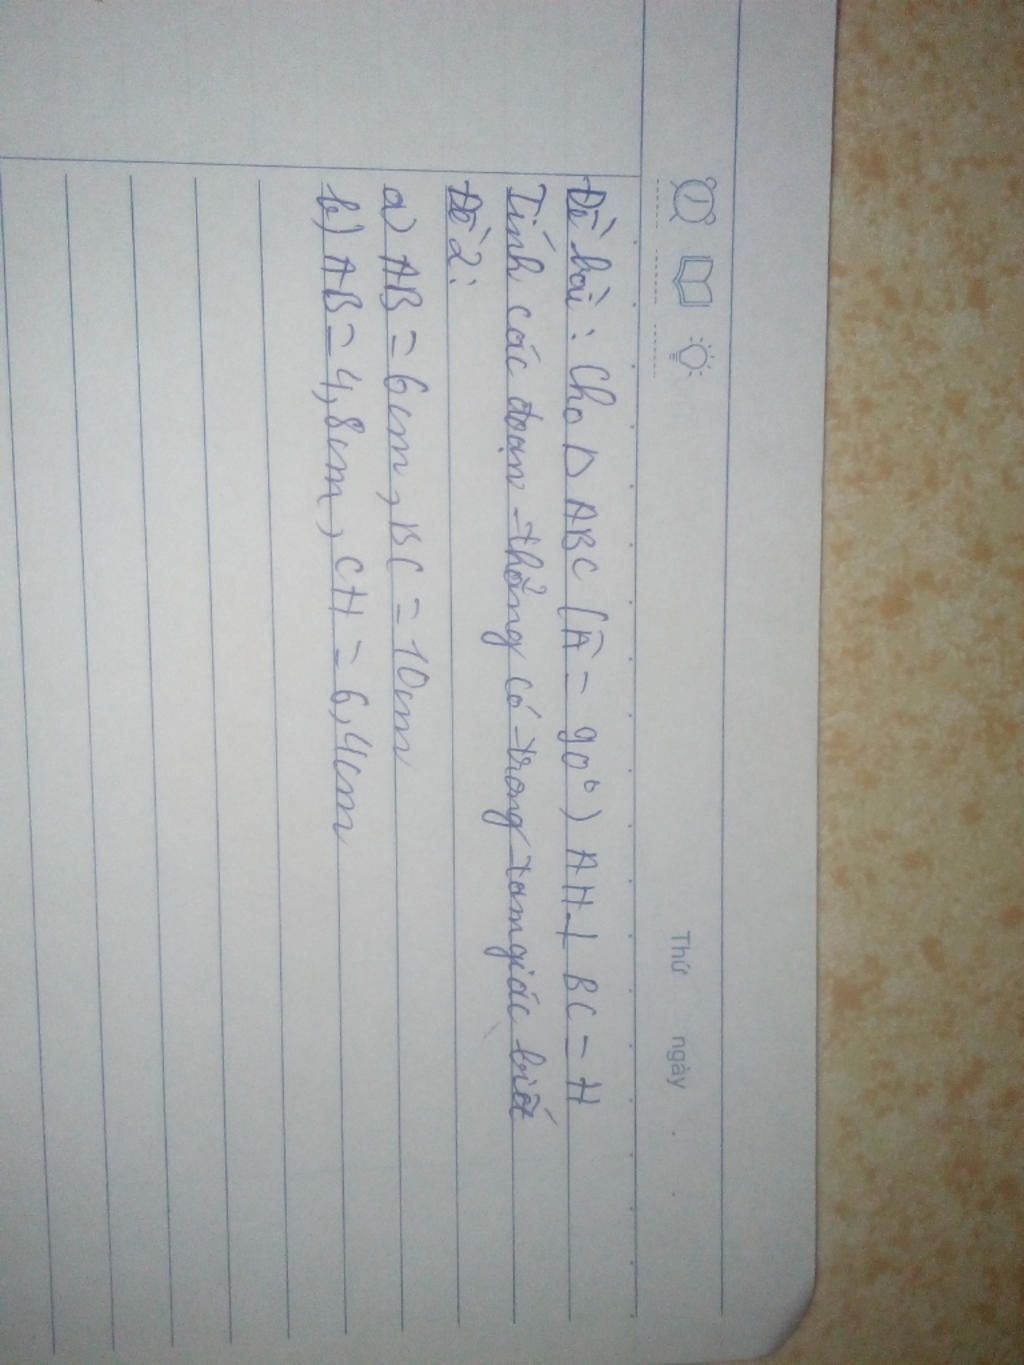 Thứ ngày
Đề bài: Cho Δ ABC (Â = 90°) AH ⊥ BC = H
Tính các đoạn thẳng có trong tam giác biết
Đề 2:
a) AB = 6cm, BC = 10cm
b) AB = 4,8cm, CH = 6,4cm